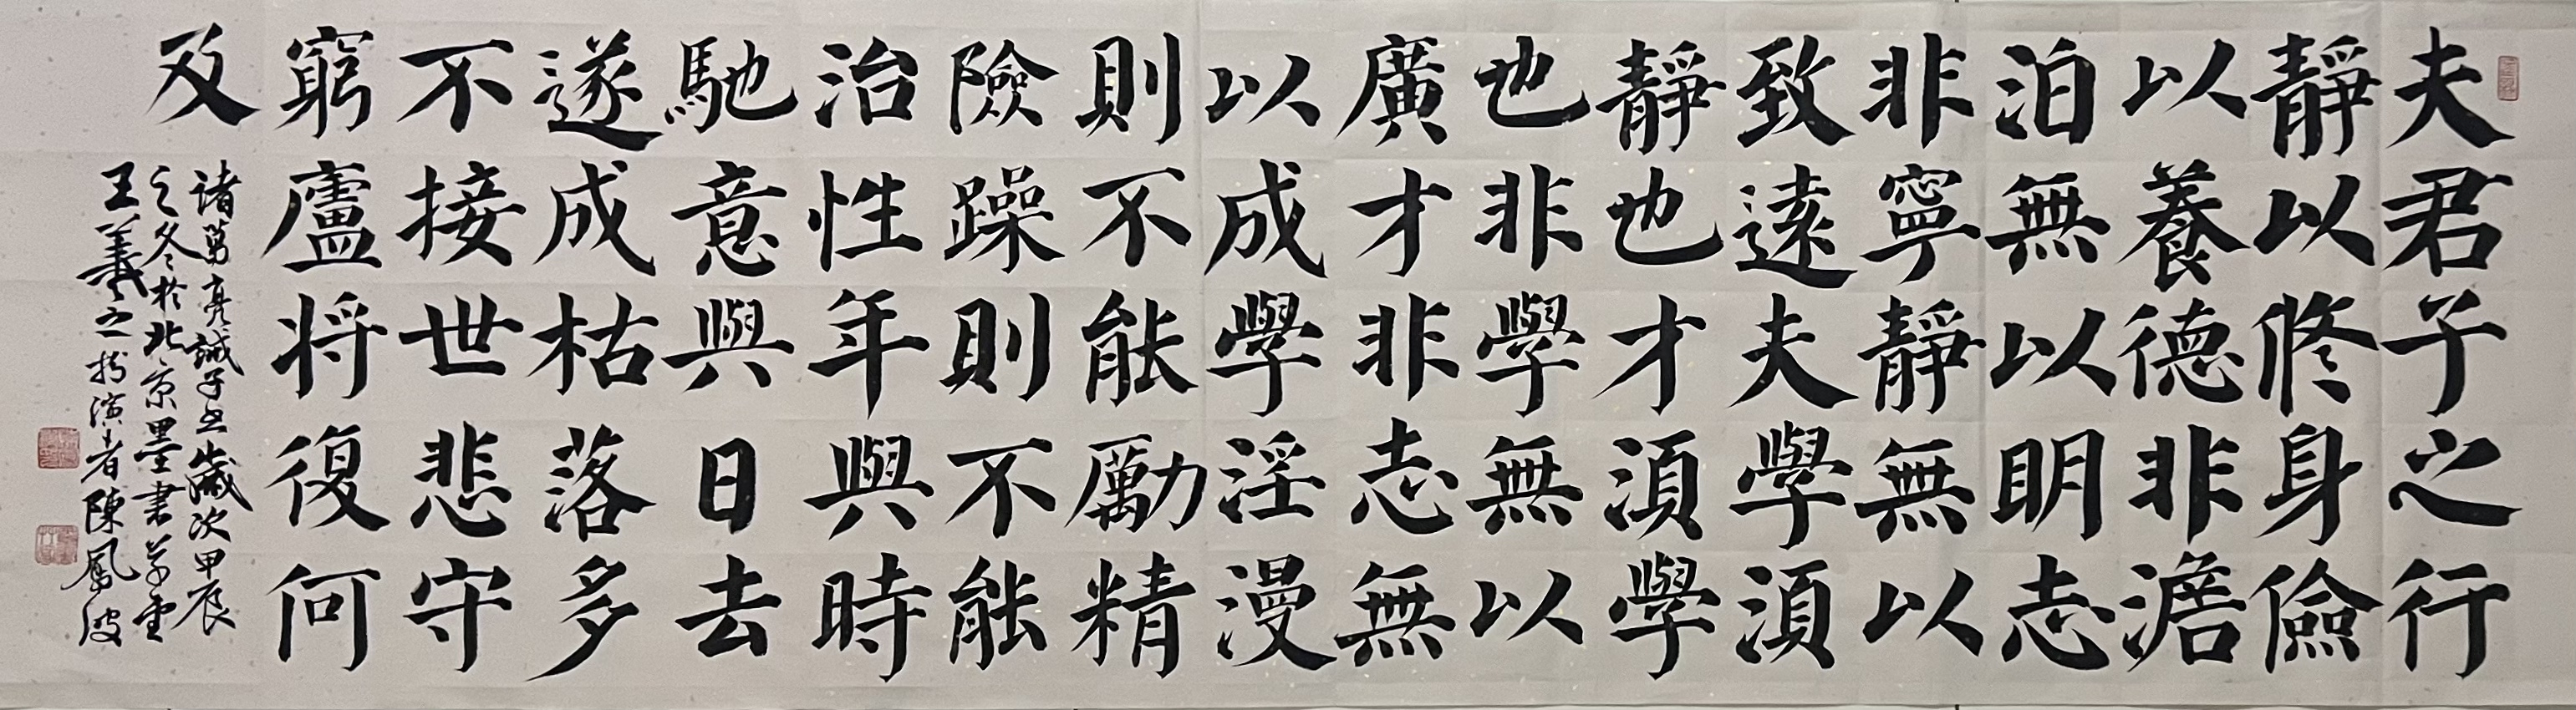 夫君子之行
靜以修身儉
以養德非澹
泊無以明志
非寧靜無以
致遠夫學須
靜也才須學
也非學無以
廣才非志無
以成學淫漫
則不能勵精
險躁則不能
治性年與時
馳意與日去
遂成枯落多
不接世悲守
窮廬將復何
及
諸葛亮誡子書歲次甲辰
之冬於北京墨書草堂
王羲之扮演者陳鳳波